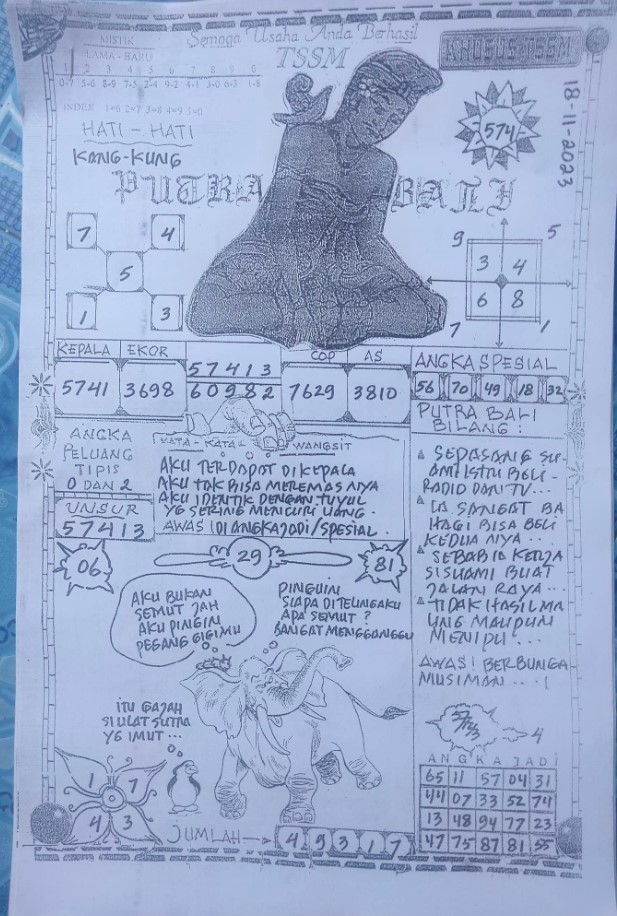 Semoga Usaha Anda Berhasil
TSSM
KHUSUS TSSM
MISTIK
LAMA - BARU
1 2 3 4 5 6 7 8 9 0
0-7 5-6 8-9 7-5 2-4 9-2 4-1 3-0 6-3 1-8
INDEX 1=6 2=7 3=8 4=9 5=0
HATI - HATI
KANG-KUNG
574
18-11-2023
PUTRA BALI
7 4
5
1 3
9 5
3 4
6 8
7 1
KEPALA EKOR
5741 3698
57413
60982
COP AS
7629 3810
ANGKA SPESIAL
56 70 49 18 32
ANGKA
PELUANG
TIPIS
0 DAN 2
UNSUR
57413
KATA - KATA WANGSIT
AKU TERDAPAT DI KEPALA
AKU TAK BISA MEREMAS NYA
AKU IDENTIK DENGAN TUYUL
YG SERING MENCURI UANG.
AWAS! DI ANGKA JADI/SPESIAL.
PUTRA BALI
BILANG:
SEPASANG SU-
AMI ISTRI BELI-
RADIO DAN TV...
IA SANGAT BA
HAGI BISA BELI
KEDUA NYA...
SEBAB IA KERJA
SI SUAMI BUAT
JALAN RAYA...
TIDAK HASIL MA
LING MAUPUN
MENIPU...
AWAS! BERBUNGA
MUSIMAN...!
06
29
81
AKU BUKAN
SEMUT JAH
AKU PINGIN
PEGANG GIGIMU
PINGUIN
SIAPA DI TELINGAKU
APA SEMUT?
BANGAT MENGGANGGU
ITU GAJAH
SI ULAT SUTRA
YG IMUT...
1 7
4 3
JUMLAH
4 9 3 1 7
4
ANGKA JADI
65 11 57 04 31
44 07 33 52 74
13 48 94 77 23
47 75 87 81 55